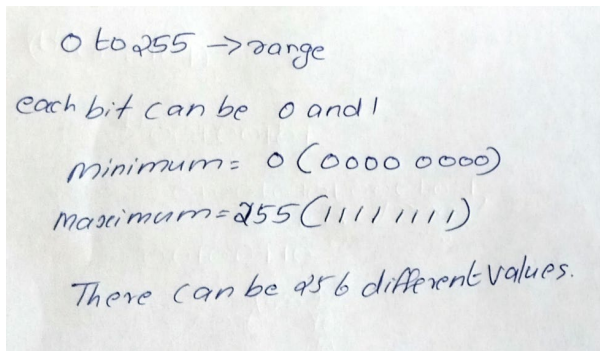 0 to 255 -> range
each bit can be 0 and 1
minimum = 0 (0000 0000)
maximum = 255 (1111 1111)
There can be 256 different values.